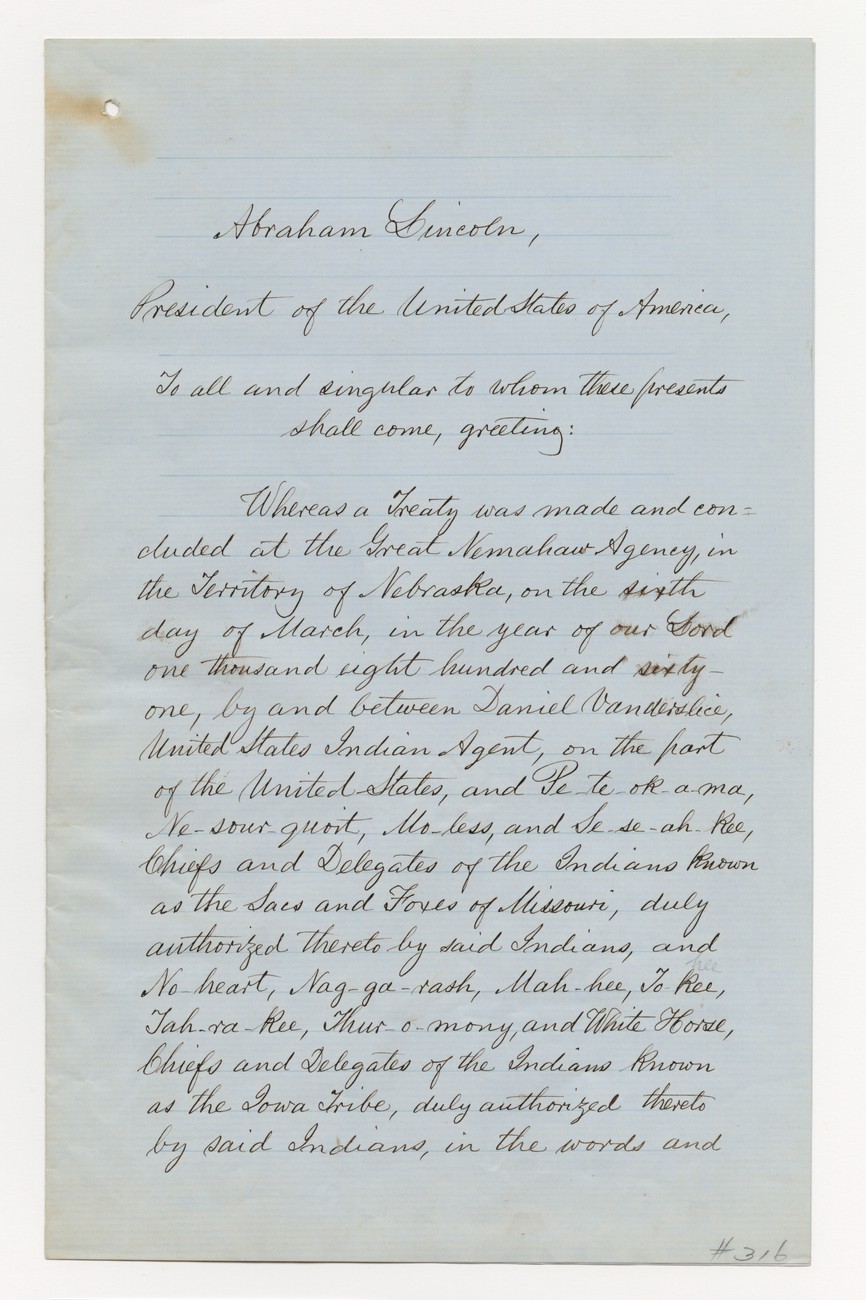 Abraham Lincoln,
President of the United States of America,
To all and singular to whom these presents
shall come, greeting:
Whereas a Treaty was made and con=
cluded at the Great Nemahaw Agency, in
the Territory of Nebraska, on the sixth
day of March, in the year of our Lord
one thousand eight hundred and sixty-
one, by and between Daniel Vanderslice,
United States Indian Agent, on the part
of the United States, and Pe-te-ok-a-ma,
Ne-sour-quoit, Mo-less, and Se-se-ah-kee,
Chiefs and Delegates of the Indians known
as the Sacs and Foxes of Missouri, duly
authorized thereto by said Indians, and
hee
No-heart, Nag-ga-rash, Mah-hee, To-kee,
Tah-ra-kee, Thur-o-mony, and White Horse,
Chiefs and Delegates of the Indians known
as the Iowa Tribe, duly authorized thereto
by said Indians, in the words and
#316